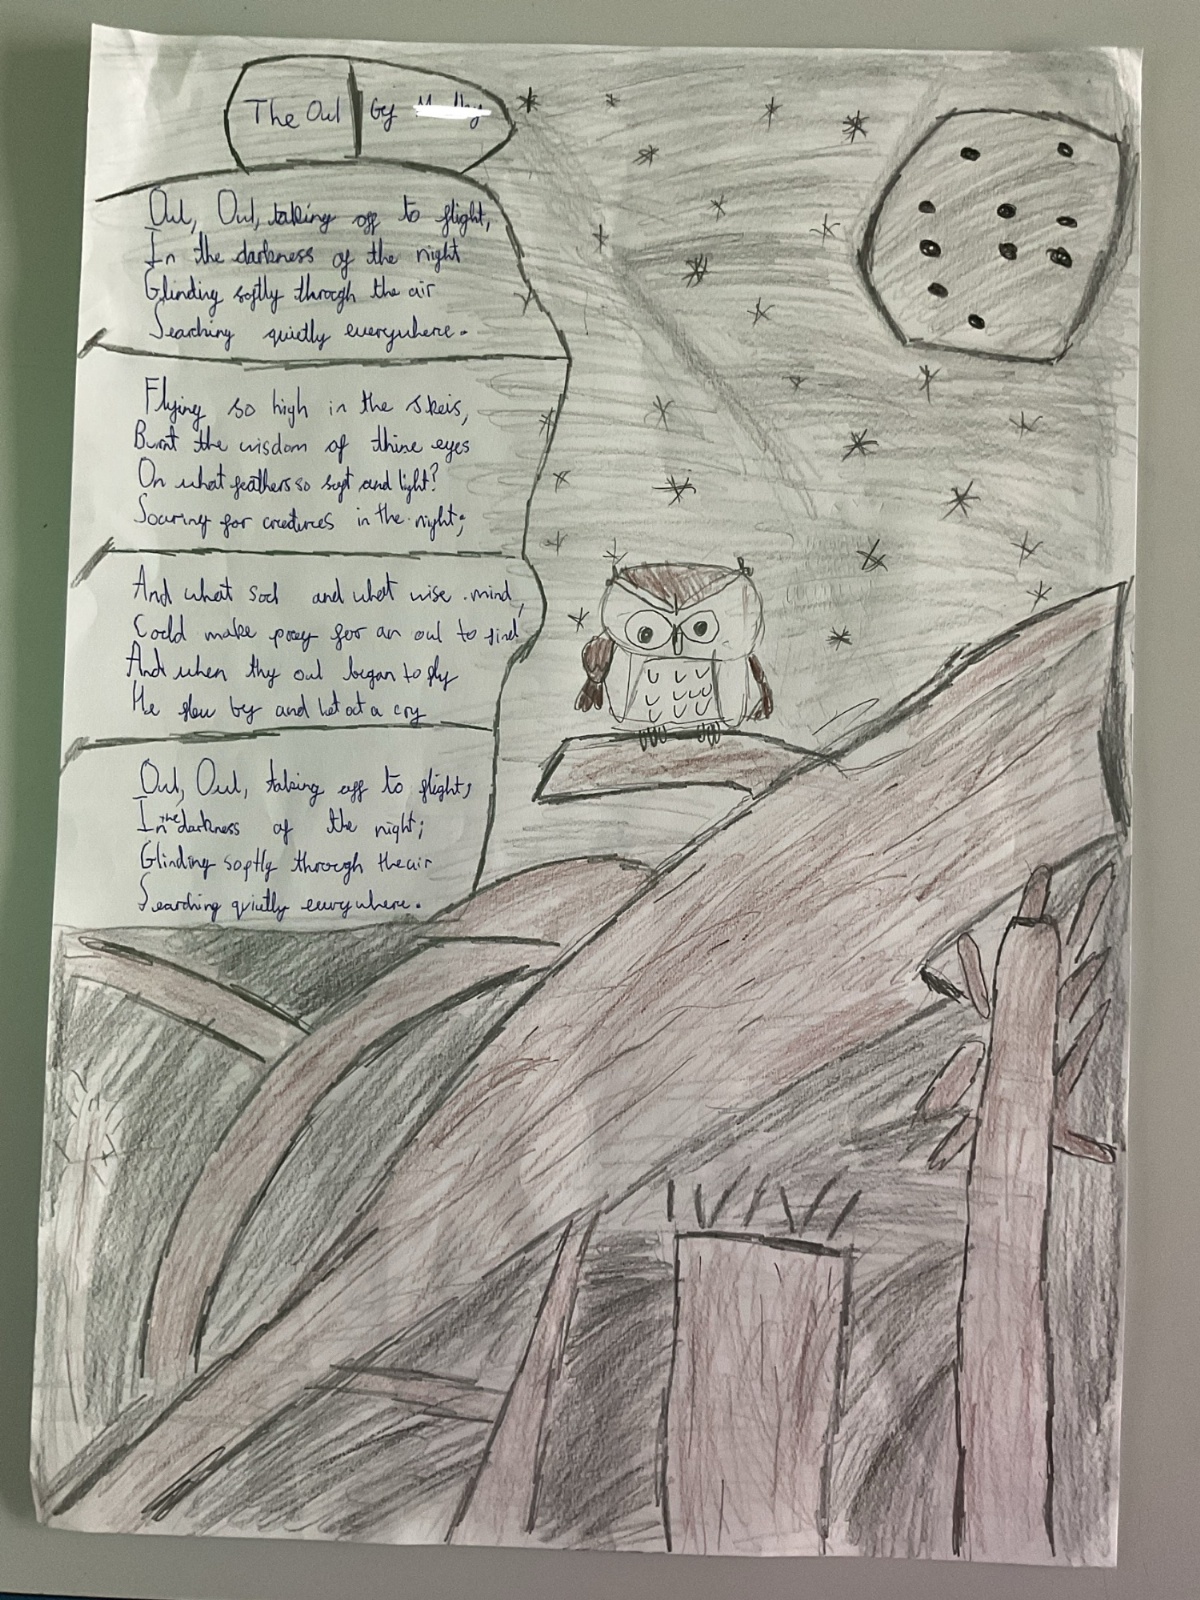 The Owl by
Owl, Owl, taking off to flight,
In the darkness of the night
Glinding softly through the air
Searching quietly everywhere.
Flying so high in the skeis,
Burnt the wisdom of thine eyes
On what feathers so soft and light?
Soaring for creatures in the night;
And what and what wise mind,
Could make prey for an owl to find
And when thy owl began to fly
He flew by and let out a cry
Owl, Owl, taking off to flight,
In the darkness of the night;
Glinding softly through the air
Searching quietly everywhere.